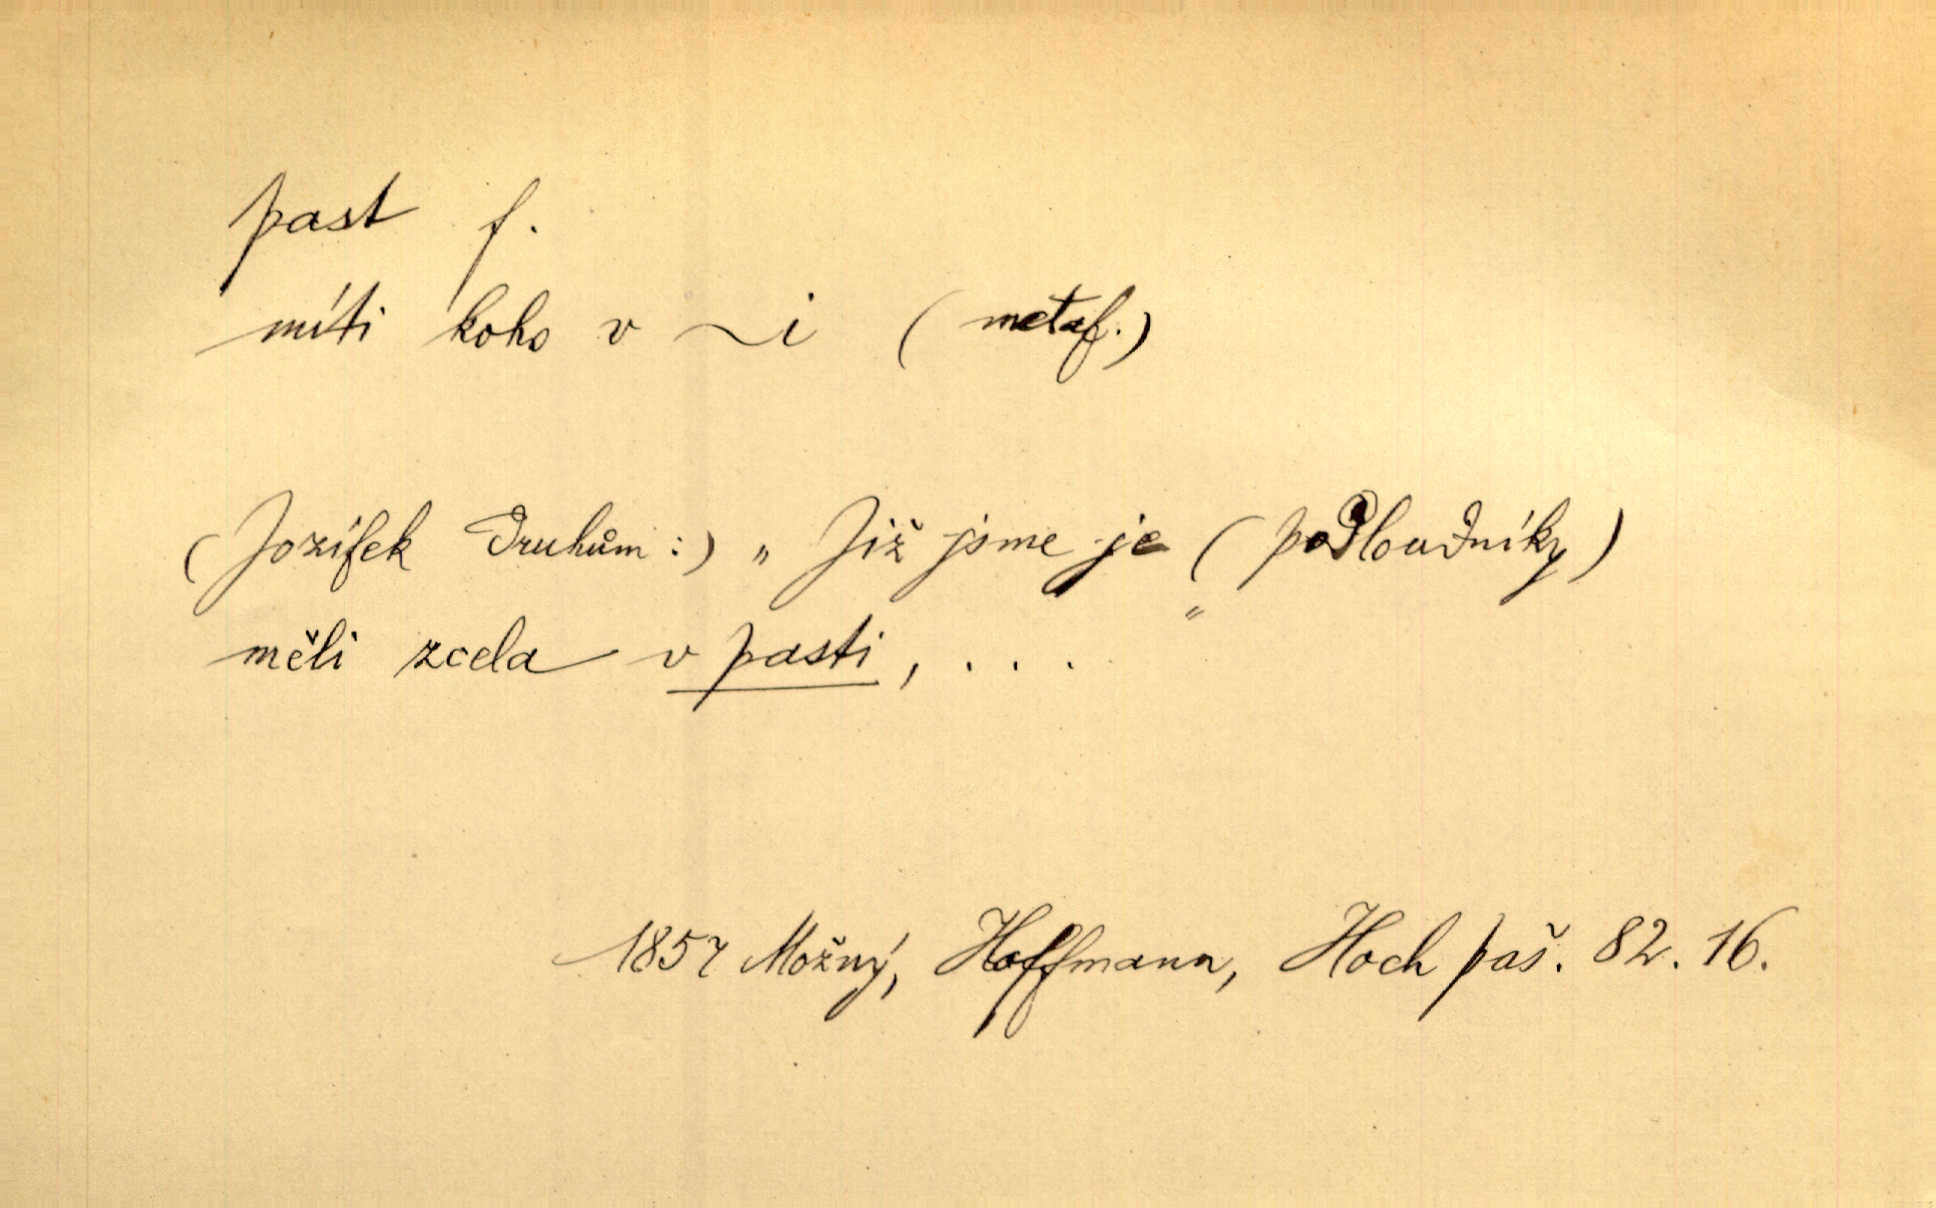 past f.
míti koho v ~i (metaf.)
(Jozífek druhům:) „Již jsme je (podloudníky)
měli zcela v pasti, . . . "
1857 Možný, Hoffmann, Hoch paš. 82. 16.